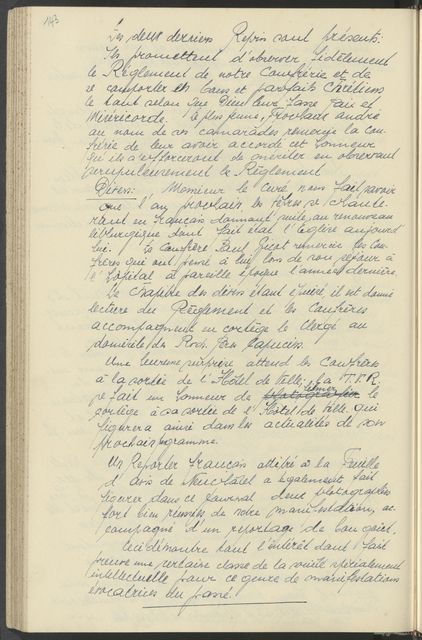 143
Les deux derniers Repris sont présents.
Ils promettent d'observer fidèlement
le Règlement de notre Confrérie et de
se comporter en bons et parfaits Chrétiens
le tout selon que Dieu leur fasse Paix et
Miséricorde. Le plus jeune, André
au nom de ses camarades remercie la con-
frérie de leur avoir accordé cet honneur
qu'ils s'efforceront de mériter en observant
scrupuleusement le Règlement
Divers: Monsieur le Curé nous fait savoir
que l'an prochain les Vêpres se chante-
ront en français donnant suite au renouveau
liturgique dont fait état l'Eglise aujourd
hui. Le Confrère Paul remercie les Con-
frères qui ont pensé à lui lors de son séjour à
l'Hôpital à pareille époque l'année dernière.
Le Chapitre des divers étant épuisé, il est donné
lecture du Règlement et les Confrères
accompagnent en cortège le Clergé au
domicile des Rvds. Pères Capucins.
Une heureuse surprise attend les Confrères
à la sortie de l'Hôtel de Ville; la T.V.R.
se fait un honneur de photographier filmer le
cortège à sa sortie de l'Hôtel de Ville qui
figurera ainsi dans les actualités de son
prochain programme.
Un Reporter français attitré à la Feuille
d'avis de Neuchâtel a également fait
figurer dans ce journal deux photographies
fort bien réussies de notre manifestation, ac-
compagné d'un reportage de bon goût.
Ceci démontre tout l'intérêt dont fait
preuve une certaine classe de la société spécialement
intellectuelle pour ce genre de manifestations
évocatrices du passé.